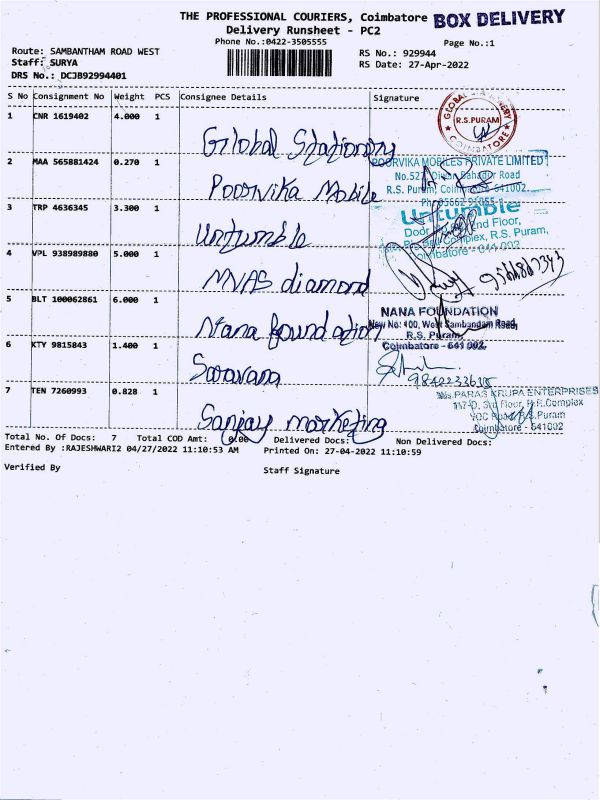 THE PROFESSIONAL COURIERS, Coimbatore BOX DELIVERY
Delivery Runsheet - PC2
Phone No.:0422-3505555
Page No.:1
Route: SAMBANTHAM ROAD WEST
RS No.: 929944
Staff: SURYA
RS Date: 27-Apr-2022
DRS No.: DCJB92994401
S No Consignment No Weight PCS Consignee Details Signature
1 CNR 1619402 4.000 1
GLOBAL STATIONERY
R.S.PURAM
COIMBATORE
Global Stationory
2 MAA 565881424 0.270 1
POORVIKA MOBILES PRIVATE LIMITED
No.527, Diwan Bahadur Road
R.S. Puram, Coimbatore 641002.
Poorvika Mobile
3 TRP 4636345 3.300 1
Untumble
Floor,
Complex, R.S. Puram,
Coimbatore - 641 002
Untumble
4 VPL 938989880 5.000 1
MVAS diamond
5 BLT 100062861 6.000 1
NANA FOUNDATION
New No: 100, West Sambandam Road,
R.S. Puram,
Coimbatore - 641 002.
Nana foundation
6 KTY 9815843 1.480 1
Saravana
7 TEN 7260993 0.828 1
M/s.PARAS KRUPA ENTERPRISES
Floor, Complex
VOC Road, R.S.Puram
Coimbatore - 641002
Sanjay marketing
Total No. Of Docs: 7 Total COD Amt: 0.00 Delivered Docs: Non Delivered Docs:
Entered By :RAJESHWARI2 04/27/2022 11:10:53 AM Printed On: 27-04-2022 11:10:59
Verified By Staff Signature